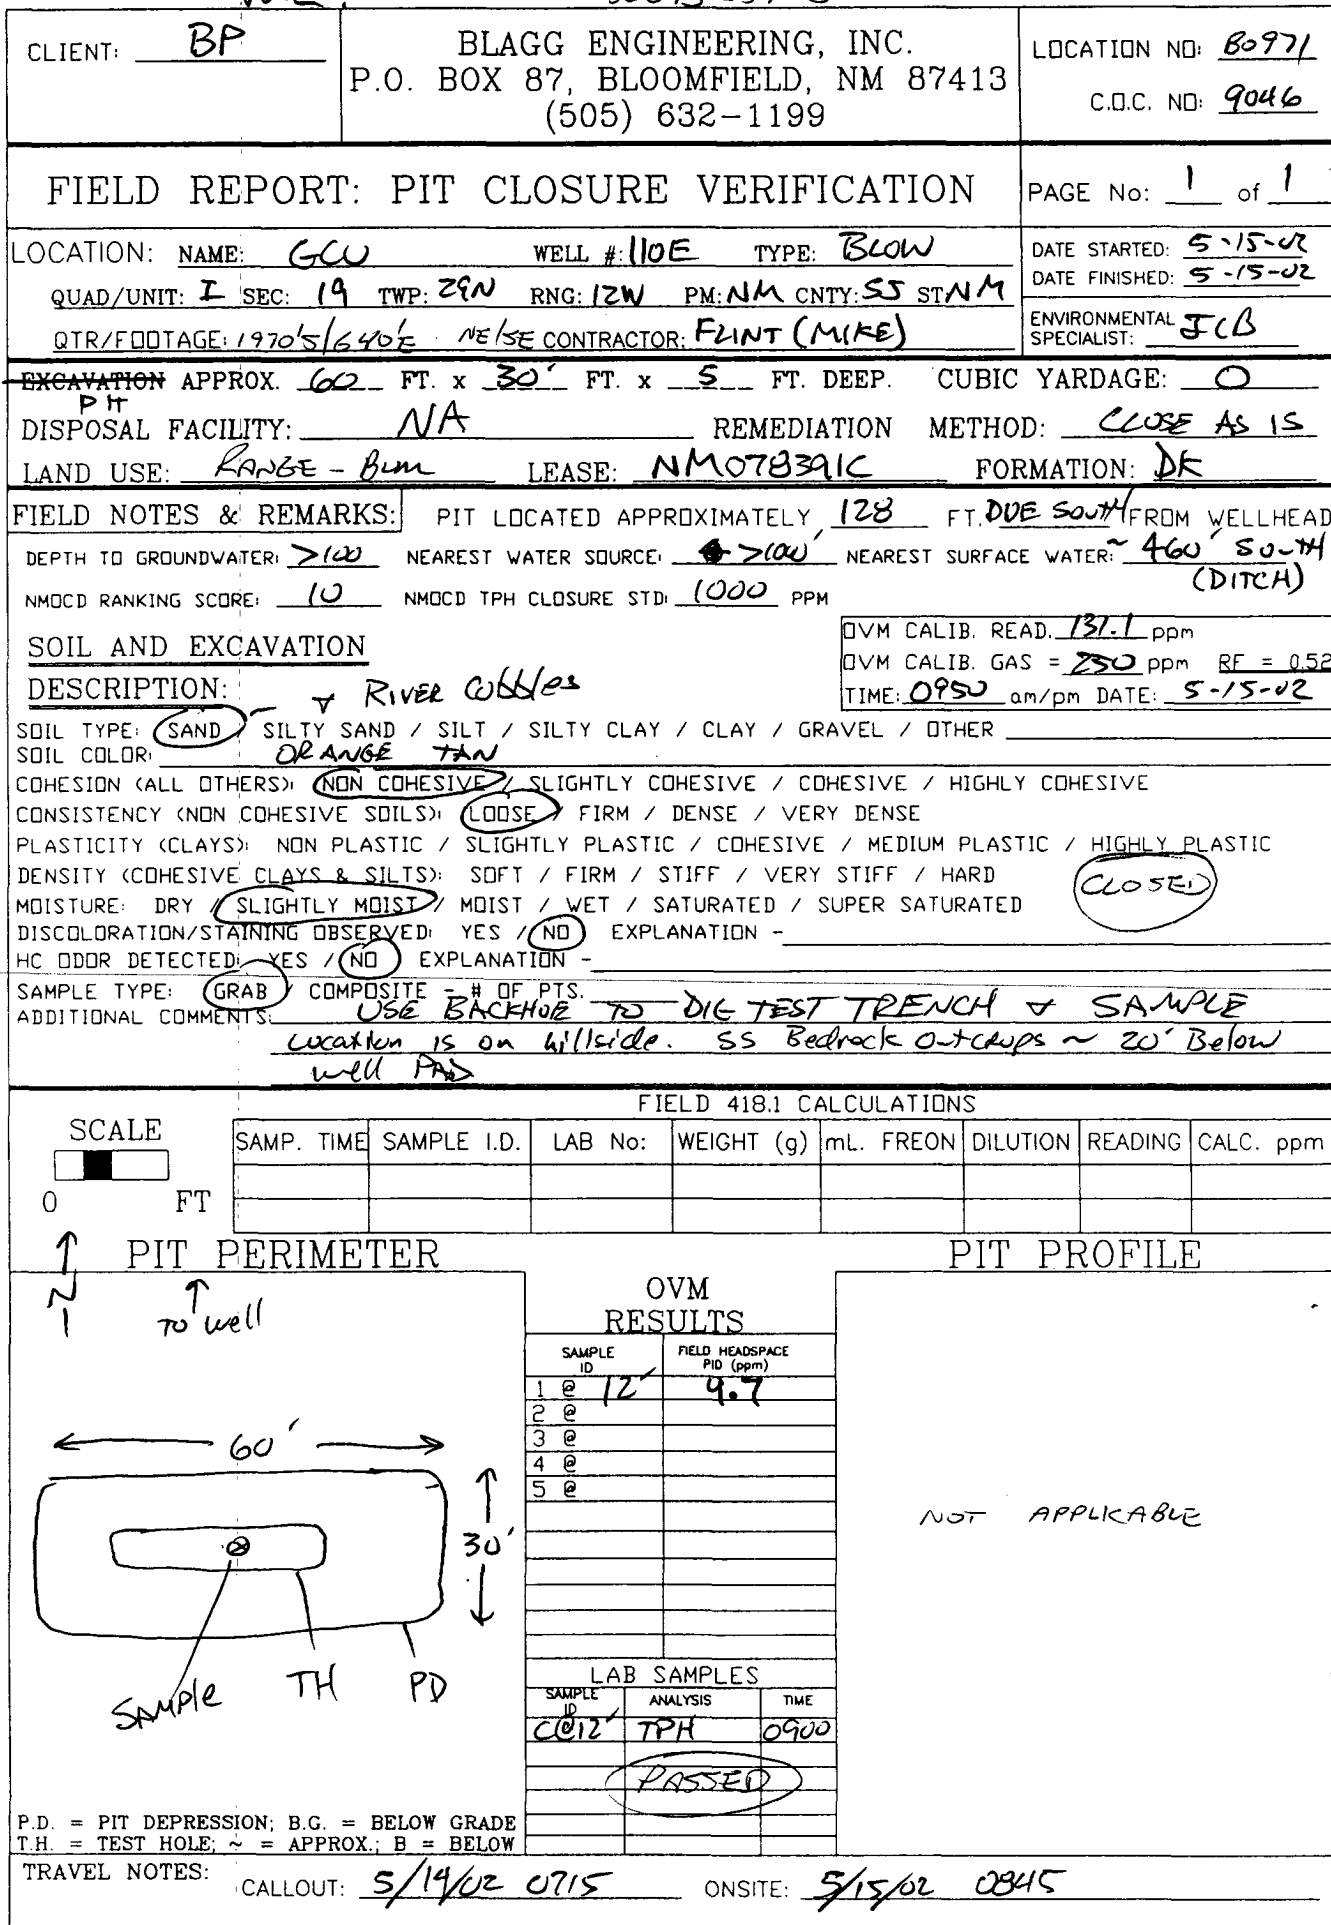 CLIENT: BP
BLAGG ENGINEERING, INC.
P.O. BOX 87, BLOOMFIELD, NM 87413
(505) 632-1199
LOCATION NO: B0971
C.O.C. NO: 9046
FIELD REPORT: PIT CLOSURE VERIFICATION
PAGE No: 1 of 1
LOCATION: NAME: GCU WELL #: 110E TYPE: BLOW
QUAD/UNIT: I SEC: 19 TWP: 29N RNG: 12W PM: NM CNTY: SJ ST NM
QTR/FOOTAGE: 1970'S/640'E NE/SE CONTRACTOR: FLINT (MIKE)
DATE STARTED: 5-15-02
DATE FINISHED: 5-15-02
ENVIRONMENTAL
SPECIALIST: JCB
EXCAVATION APPROX. 60 FT. x 30' FT. x 5 FT. DEEP. CUBIC YARDAGE: 0
PIT
DISPOSAL FACILITY: NA REMEDIATION METHOD: CLOSE AS IS
LAND USE: RANGE - BLM LEASE: NM078391C FORMATION: DK
FIELD NOTES & REMARKS: PIT LOCATED APPROXIMATELY 128 FT. DUE SOUTH FROM WELLHEAD
DEPTH TO GROUNDWATER: >100 NEAREST WATER SOURCE: >100' NEAREST SURFACE WATER: ~ 460' SOUTH
(DITCH)
NMOCD RANKING SCORE: 10 NMOCD TPH CLOSURE STD: 1000 PPM
SOIL AND EXCAVATION
DESCRIPTION:
OVM CALIB. READ. 131.1 ppm
OVM CALIB. GAS = 250 ppm RF = 0.52
TIME: 0950 am/pm DATE: 5-15-02
& RIVER CObbles
SOIL TYPE: SAND / SILTY SAND / SILT / SILTY CLAY / CLAY / GRAVEL / OTHER
SOIL COLOR: ORANGE TAN
COHESION (ALL OTHERS): NON COHESIVE / SLIGHTLY COHESIVE / COHESIVE / HIGHLY COHESIVE
CONSISTENCY (NON COHESIVE SOILS): LOOSE / FIRM / DENSE / VERY DENSE
PLASTICITY (CLAYS): NON PLASTIC / SLIGHTLY PLASTIC / COHESIVE / MEDIUM PLASTIC / HIGHLY PLASTIC
DENSITY (COHESIVE CLAYS & SILTS): SOFT / FIRM / STIFF / VERY STIFF / HARD
CLOSED
MOISTURE: DRY / SLIGHTLY MOIST / MOIST / WET / SATURATED / SUPER SATURATED
DISCOLORATION/STAINING OBSERVED: YES / NO EXPLANATION -
HC ODOR DETECTED: YES / NO EXPLANATION -
SAMPLE TYPE: GRAB / COMPOSITE - # OF PTS.
ADDITIONAL COMMENTS: USE BACKHOE TO DIG TEST TRENCH & SAMPLE
Location is on hillside. SS Bedrock Outcrops ~ 20' Below
well PAD
FIELD 418.1 CALCULATIONS
SCALE
0 FT
SAMP. TIME SAMPLE I.D. LAB No: WEIGHT (g) mL. FREON DILUTION READING CALC. ppm
N
PIT PERIMETER
PIT PROFILE
TO well
OVM
RESULTS
SAMPLE ID
FIELD HEADSPACE PID (ppm)
1 @ 12' 9.7
2 @
3 @
4 @
5 @
60'
30'
SAMPle
TH
PD
NOT APPLICABLE
LAB SAMPLES
SAMPLE ID ANALYSIS TIME
C@12' TPH 0900
PASSED
P.D. = PIT DEPRESSION; B.G. = BELOW GRADE
T.H. = TEST HOLE; ~ = APPROX.; B = BELOW
TRAVEL NOTES: CALLOUT: 5/14/02 0715 ONSITE: 5/15/02 0845